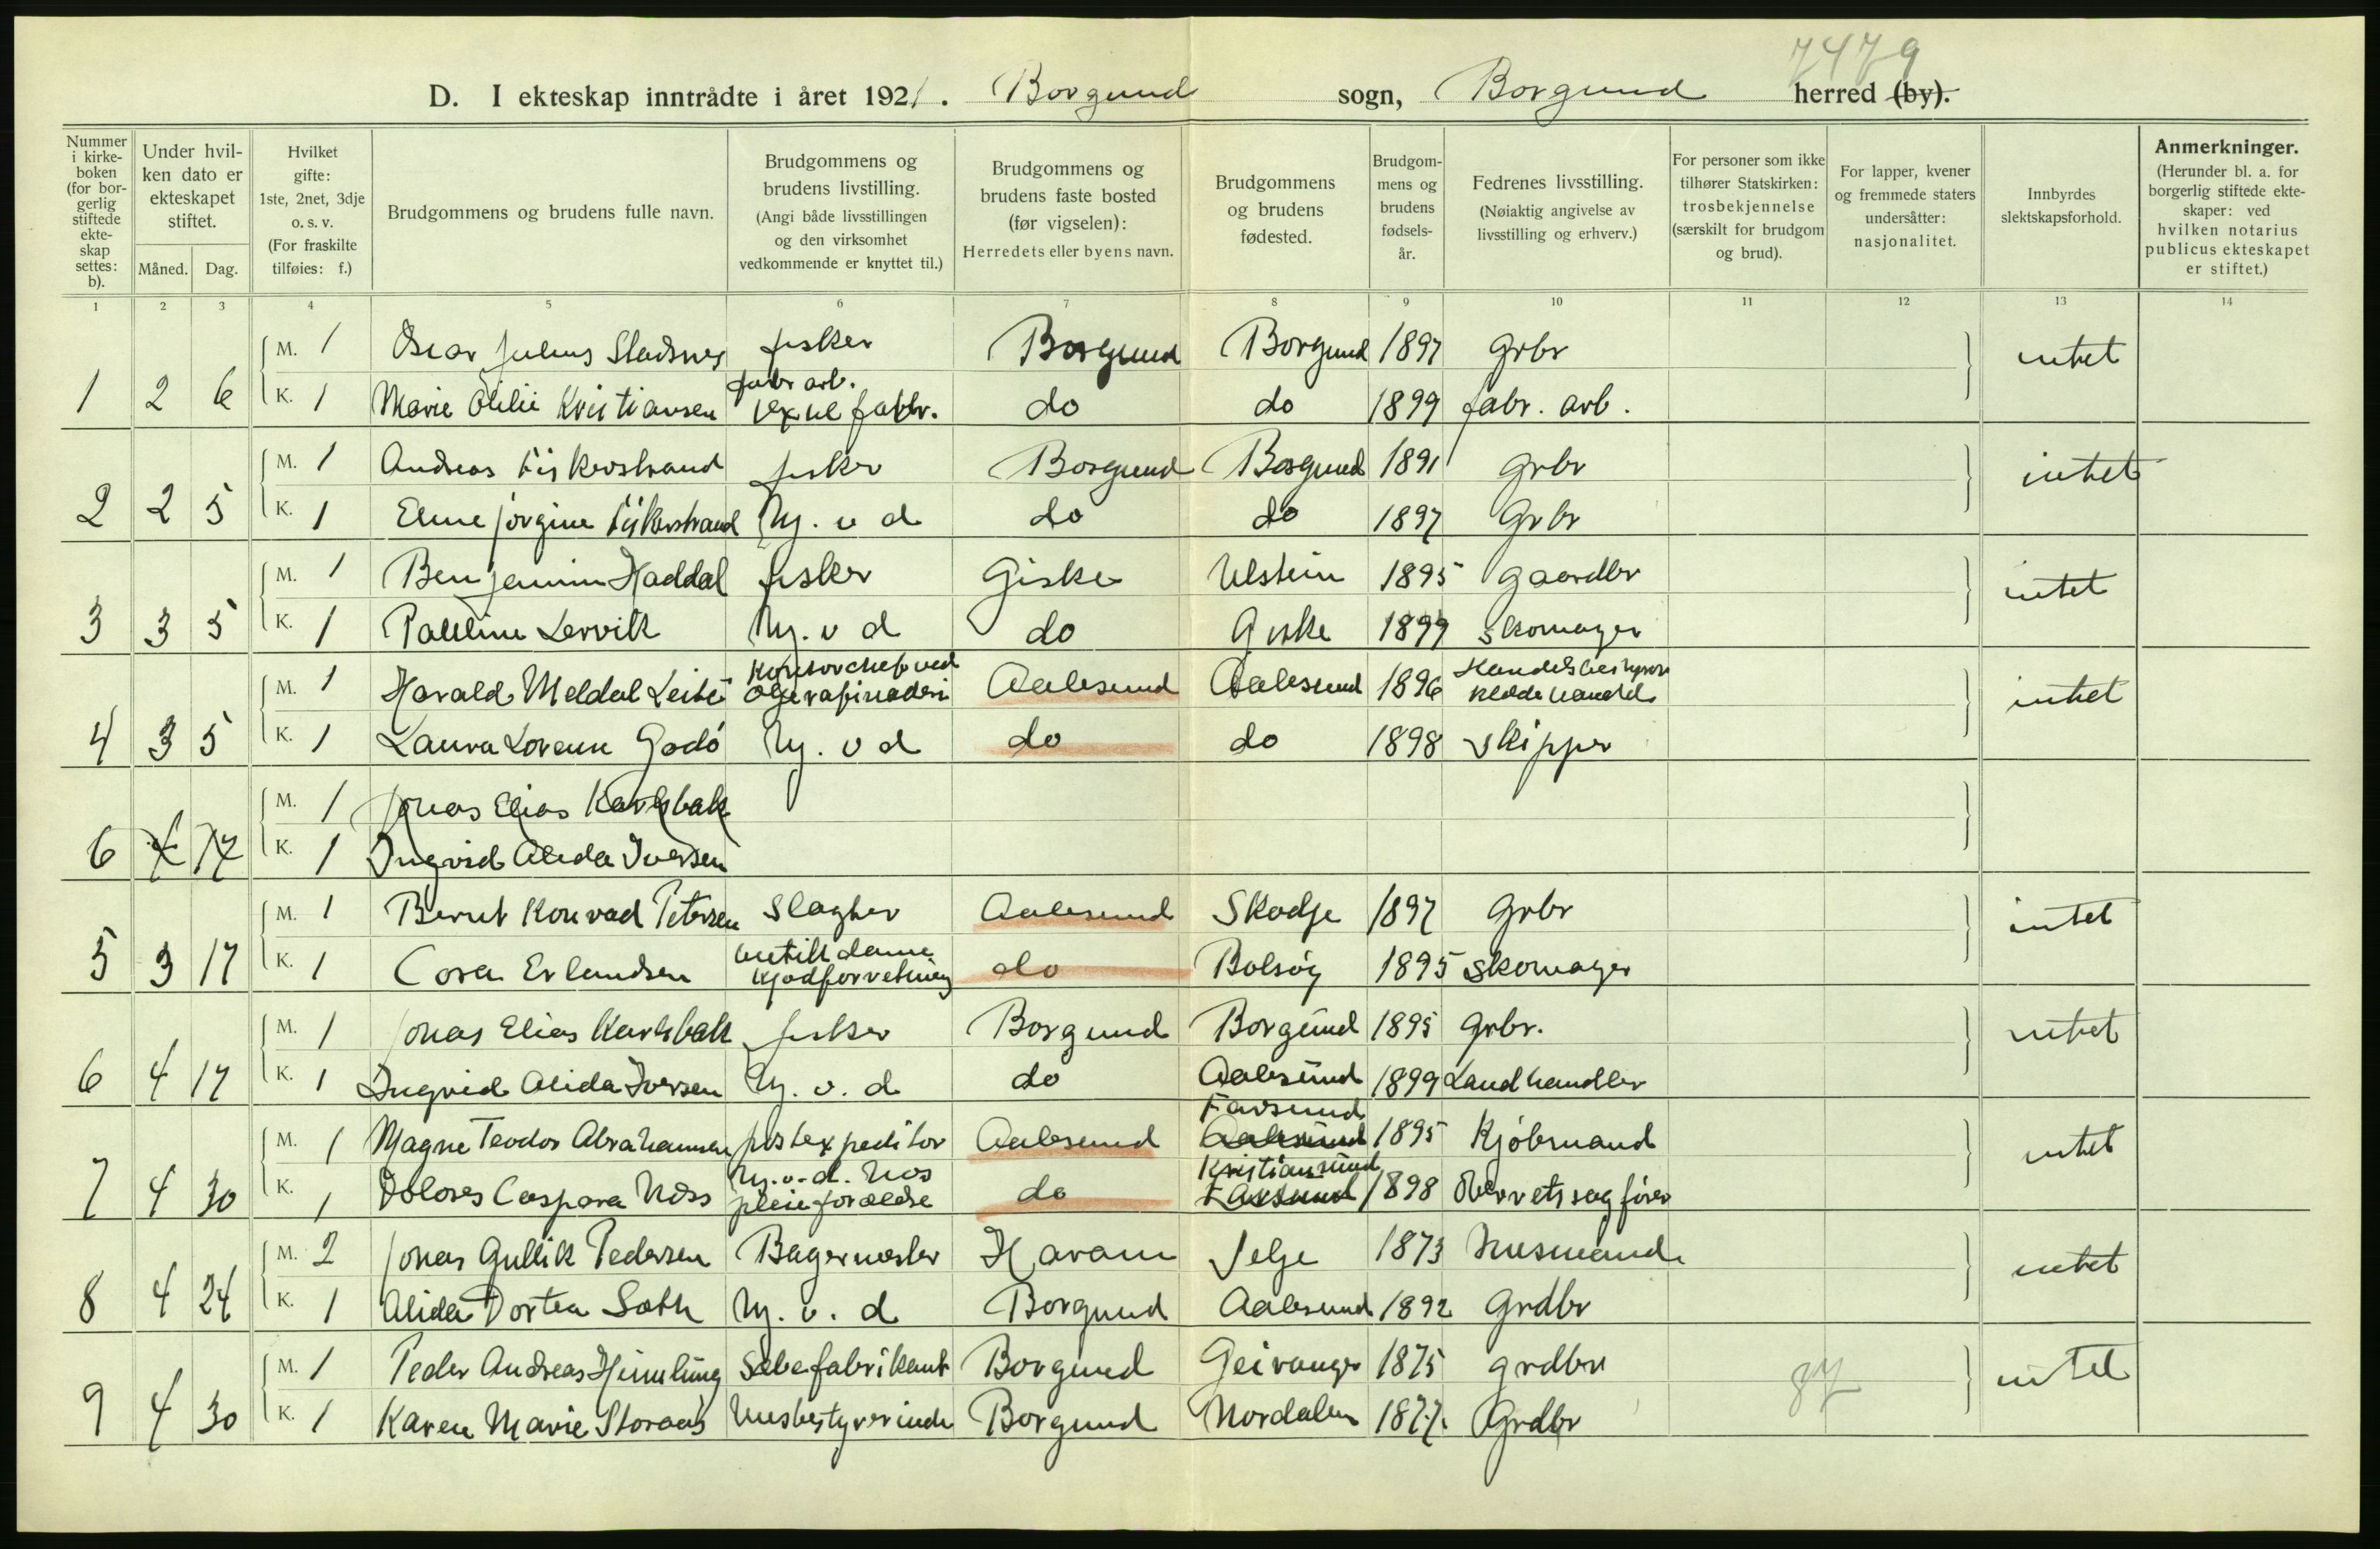 7479
D. I ekteskap inntrådte i året 1921. Borgund sogn, Borgund herred (by).
Nummer i kirkeboken (for borgerlig stiftede ekteskap settes: b).
Under hvilken dato er ekteskapet stiftet.
Måned. Dag.
Hvilket gifte: 1ste, 2net, 3dje o. s. v. (For fraskilte tilføies: f.)
Brudgommens og brudens fulle navn.
Brudgommens og brudens livstilling. (Angi både livsstillingen og den virksomhet vedkommende er knyttet til.)
Brudgommens og brudens faste bosted (før vigselen): Herredets eller byens navn.
Brudgommens og brudens fødested.
Brudgommens og brudens fødselsår.
Fedrenes livsstilling. (Nøiaktig angivelse av livsstilling og erhverv.)
For personer som ikke tilhører Statskirken: trosbekjennelse (særskilt for brudgom og brud).
For lapper, kvener og fremmede staters undersåtter: nasjonalitet.
Innbyrdes slektskapsforhold.
Anmerkninger. (Herunder bl. a. for borgerlig stiftede ekteskaper: ved hvilken notarius publicus ekteskapet er stiftet.)
1 2 3 4 5 6 7 8 9 10 11 12 13 14
M. 1 Oscar Julius Stadsnes fisker Borgund Borgund 1897 grbr intet
1 2 6 K. 1 Marie Otilie Kristiansen fabr arb. do do 1899 fabr. arb.
M. 1 Andreas Fiskerstrand fisker Borgund Borgund 1891 grbr intet
2 2 5 K. 1 Eline Jørgine Fiskerstrand Hj. v d do do 1897 Grbr
M. 1 Benjamin Haddal fisker Giske Ulstein 1895 gaardbr intet
3 3 5 K. 1 Pauline Lervik Hj. v d do Giske 1899 skomager
M. 1 Harald Meldal Kontorchef ved Aalesund Aalesund 1896 intet
4 3 5 K. 1 Laura Godø Hj. v d do do 1898 skipper
M. 1 Jonas Elias Karlsbak
6 4 17 K. 1 Ingrid Alida Iversen
M. 1 Bernt Konrad Petersen Slagter Aalesund Skodje 1897 grbr intet
5 3 17 K. 1 Cora Erlandsen kjødforretning do Bolsøy 1895 skomager
M. 1 Jonas Elias Karlsbak fisker Borgund Borgund 1895 grbr. intet
6 4 17 K. 1 Ingrid Alida Iversen Hj. v. d do Aalesund 1899 Landhandler
M. 1 Magne Teodor Abrahamsen postexpeditør Aalesund Farsund Aalesund 1895 Kjøbmand intet
7 4 30 K. 1 Dolores Caspara Næss Hj. v. d. hos pleieforældre do Kristiansund Farsund 1898 Overretssagfører
M. 2 Jonas Gullik Pedersen Bagermester Haram Selje 1873 Husmand intet
8 4 24 K. 1 Alida Dortea Hj. v. d Borgund Aalesund 1892 Grdbr
M. 1 Peder Andreas Sebefabrikant Borgund Geiranger 1875 grdbr 87 intet
9 4 30 K. 1 Karen Marie Storaas Husbestyrerinde Borgund Nordalen 1877. Grdbr